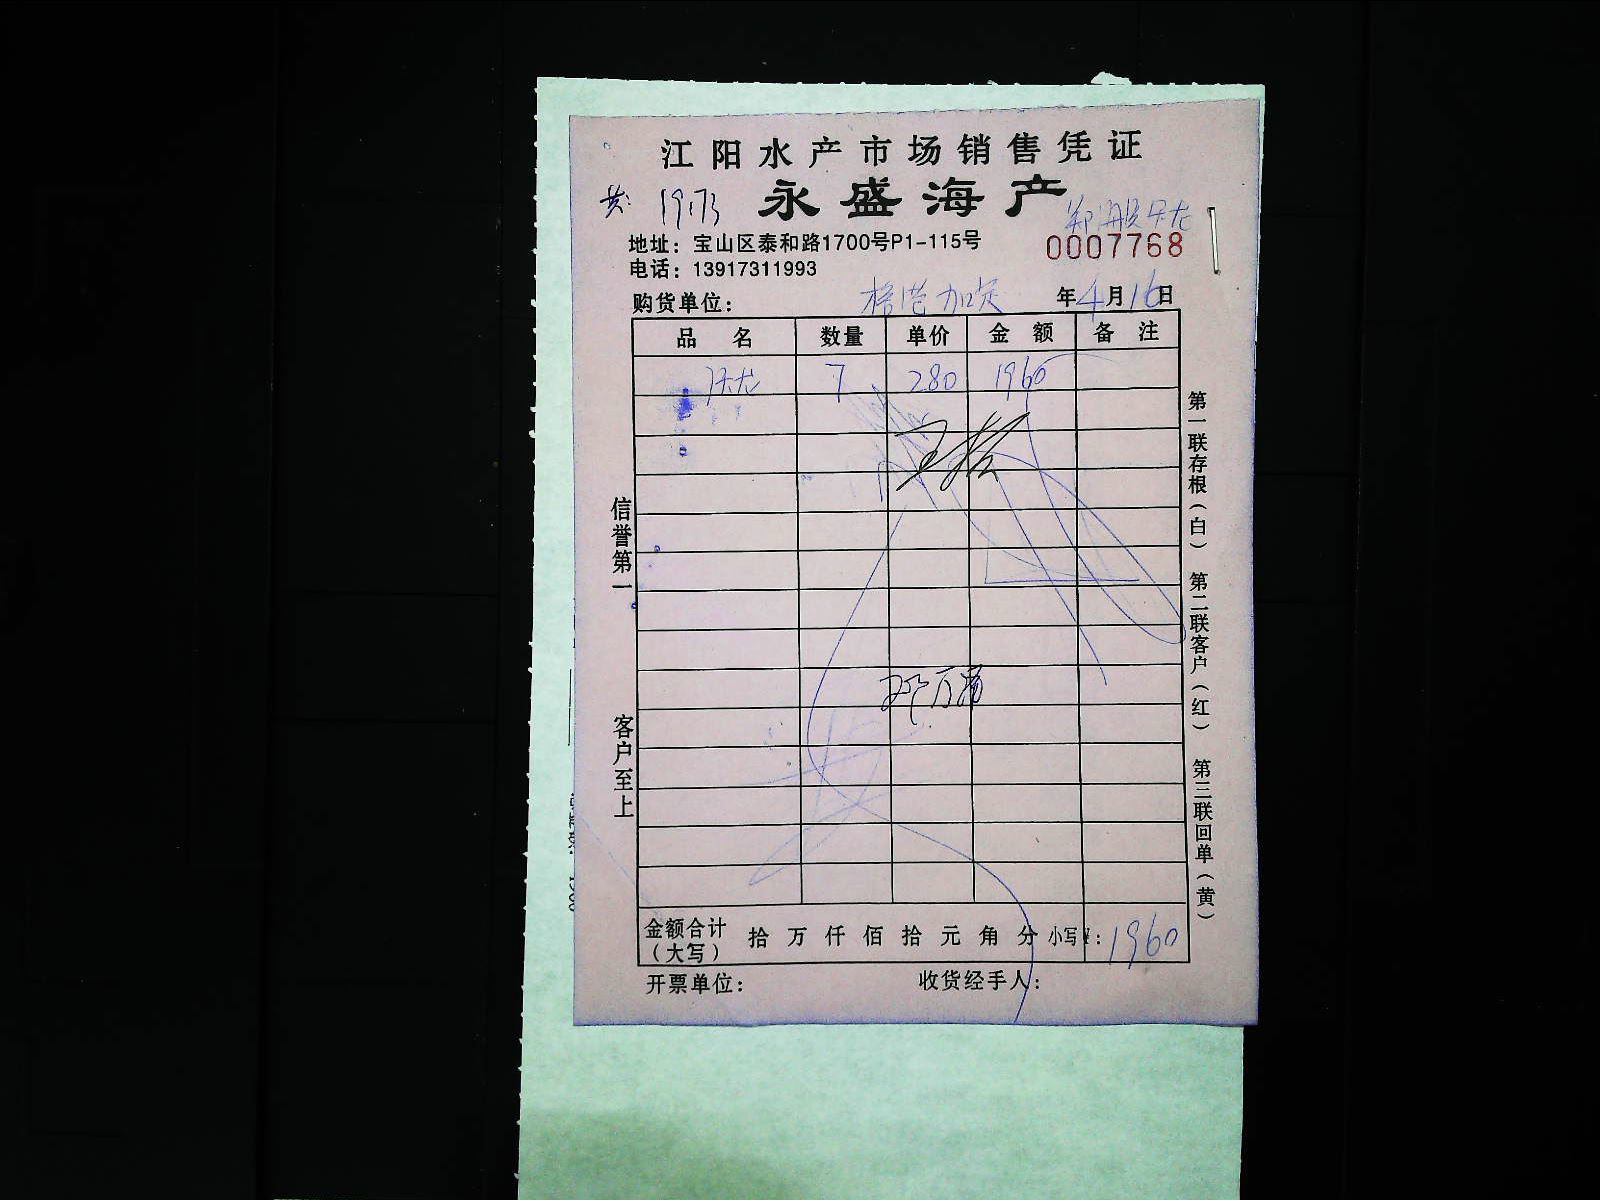 江阳水产市场销售凭证
永盛海产
共: 1973
地址：宝山区泰和路1700号P1-115号
0007768
电话：13917311993
购货单位： 年4月16日
品 名 数量 单价 金 额 备 注
7 280 1960
信誉第一
客户至上
第一联存根（白） 第二联客户（红） 第三联回单（黄）
金额合计（大写） 拾 万 仟 佰 拾 元 角 分 小写¥：1960
开票单位： 收货经手人：